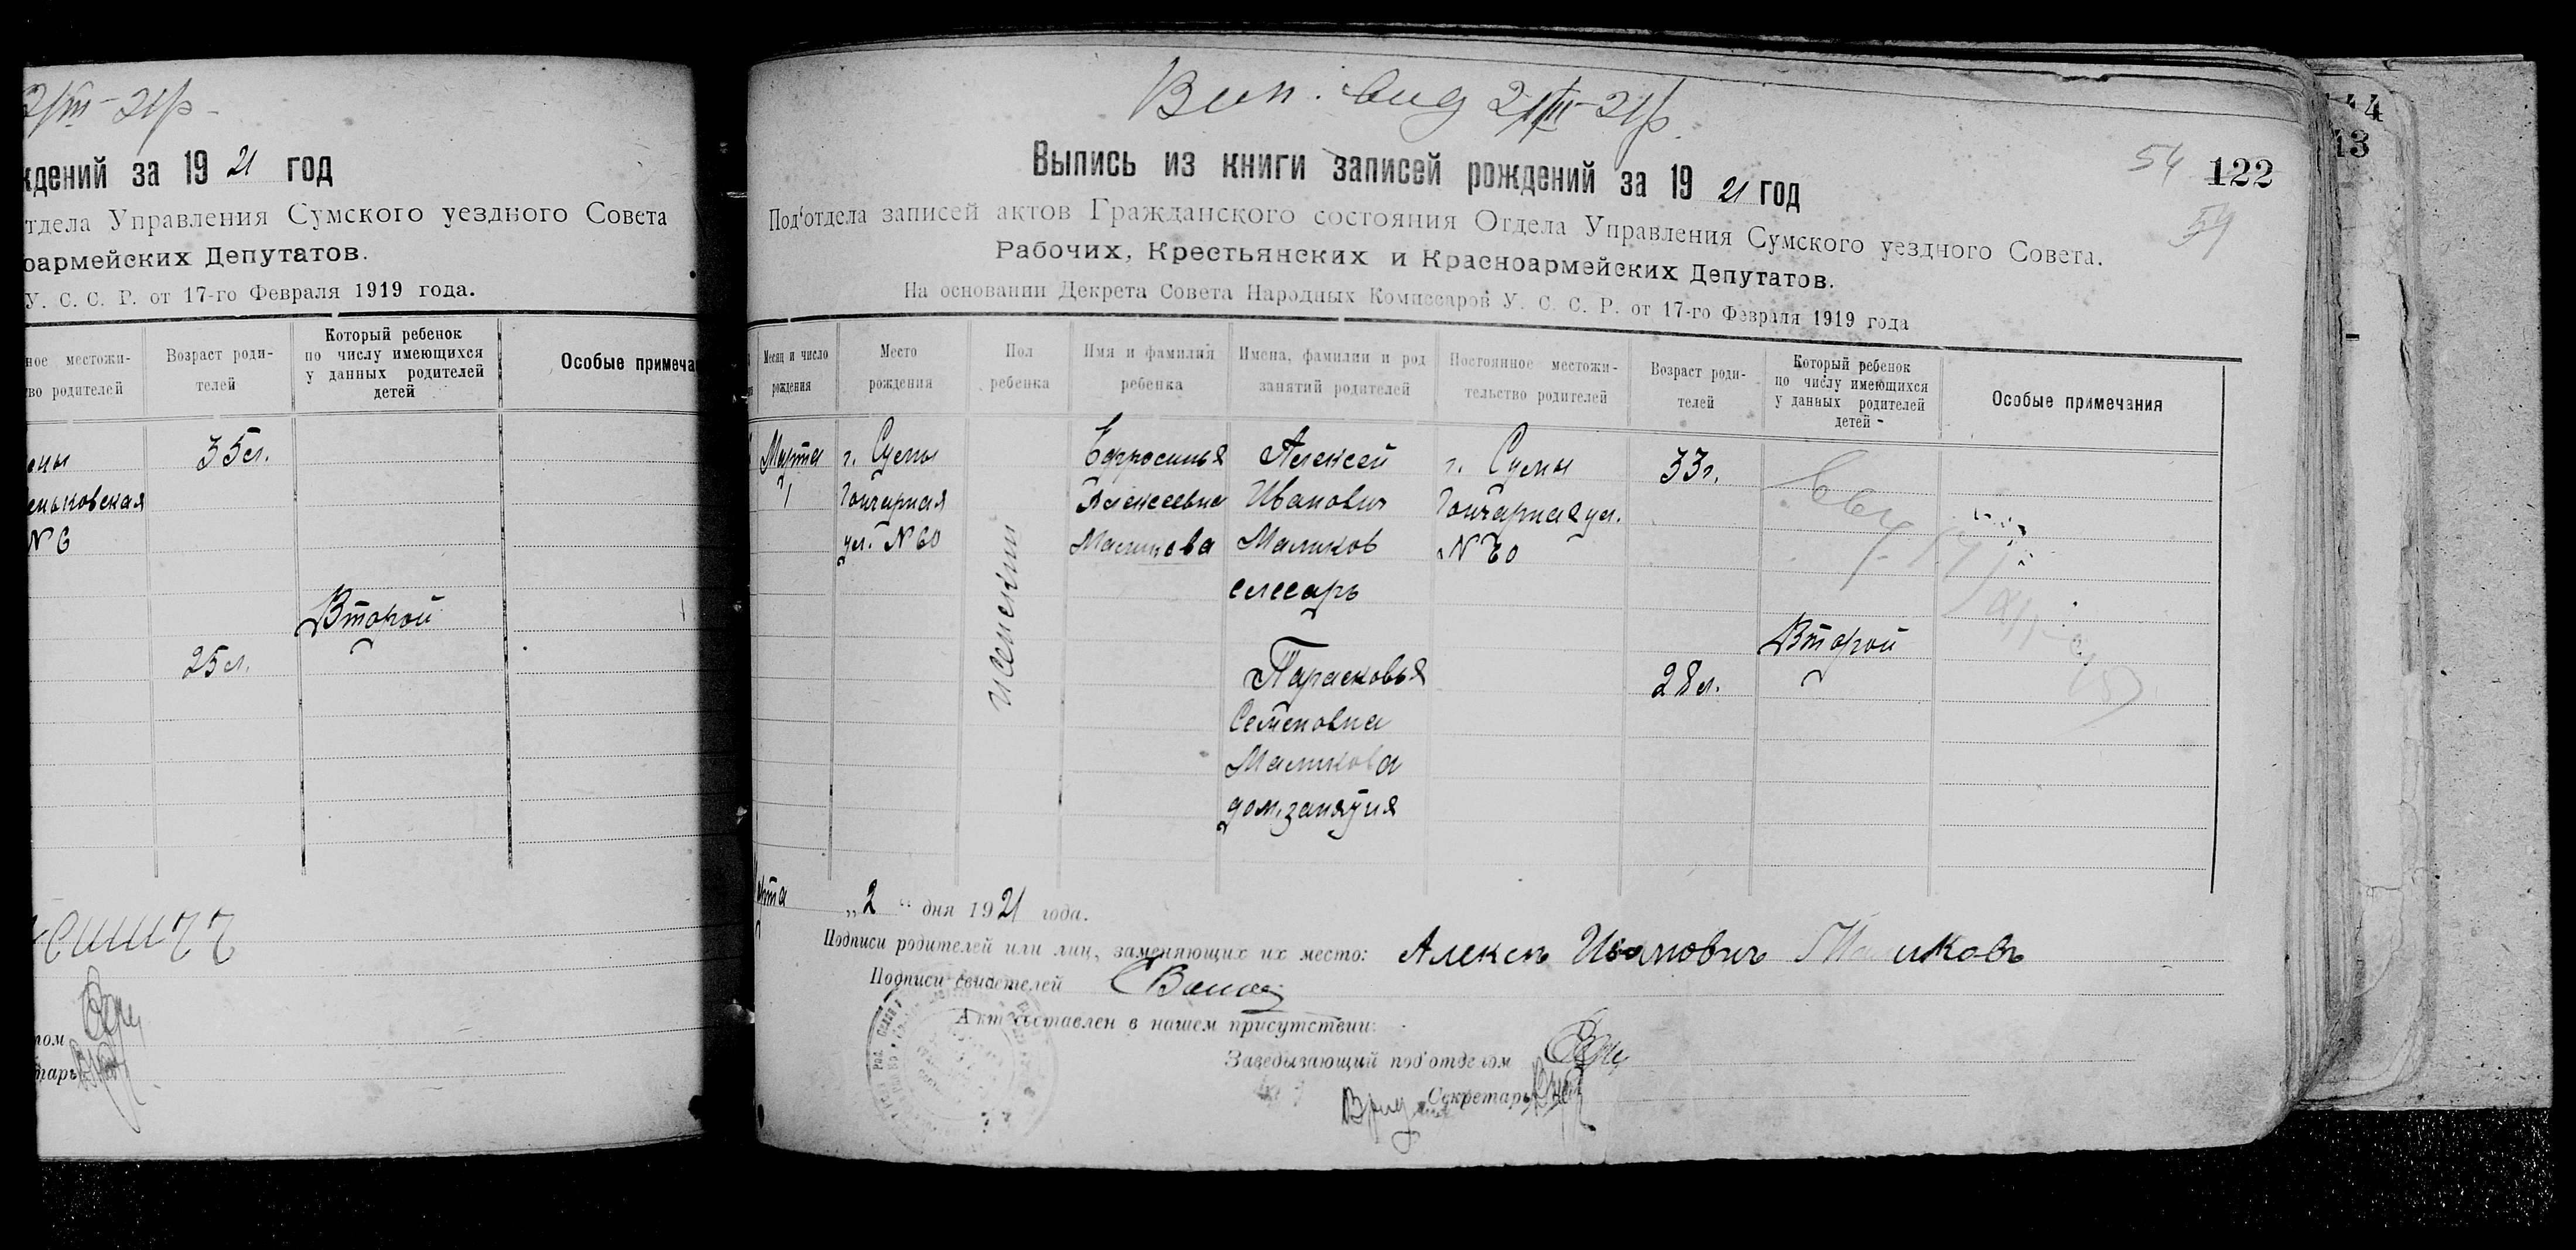 2/III-21р
ждений за 1921 год
тдела Управления Сумского уездного Совета
оармейских Депутатов.
У. С. С. Р. от 17-го Февраля 1919 года.
ное местожи-
во родителей
Возраст роди-
телей
Который ребенок
по числу имеющихся
у данных родителей
детей
Особые примеча
35л.
еньковская
N 6
Второй
25 л.
том
тарь
Вип. 2/III-21р.
54 122
54
Выпись из книги записей рождений за 1921 год
Под'отдела записей актов Гражданского состояния Отдела Управления Сумского уездного Совета.
Рабочих, Крестьянских и Красноармейских Депутатов.
На основании Декрета Совета Народных Комиссаров У. С. С. Р. от 17-го Февраля 1919 года
Месяц и число
рождения
Место
рождения
Пол
ребенка
Имя и фамилия
ребенка
Имена, фамилии и род
занятий родителей
Постоянное местожи-
тельство родителей
Возраст роди-
телей
Который ребенок
по числу имеющихся
у данных родителей
детей
Особые примечания
Марта
1
г. Сумы
Гончарная
ул. N 60
женский
Ефросинья
Алексеевна
Маликова
Алексей
Иванович
Маликов
слесарь
Парасковья
Семеновна
Маликова
дом. занятия
г. Сумы
Гончарная ул.
N 60
33 г.
28 л.
Второй
арта „2" дня 1921 года.
Подписи родителей или лиц, заменяющих их место: Алексъ Ивановичъ Маликовъ
Подписи свидетелей
Акт составлен в нашем присутствии:
Заведывающий под'отделом
Секретарь
44
13